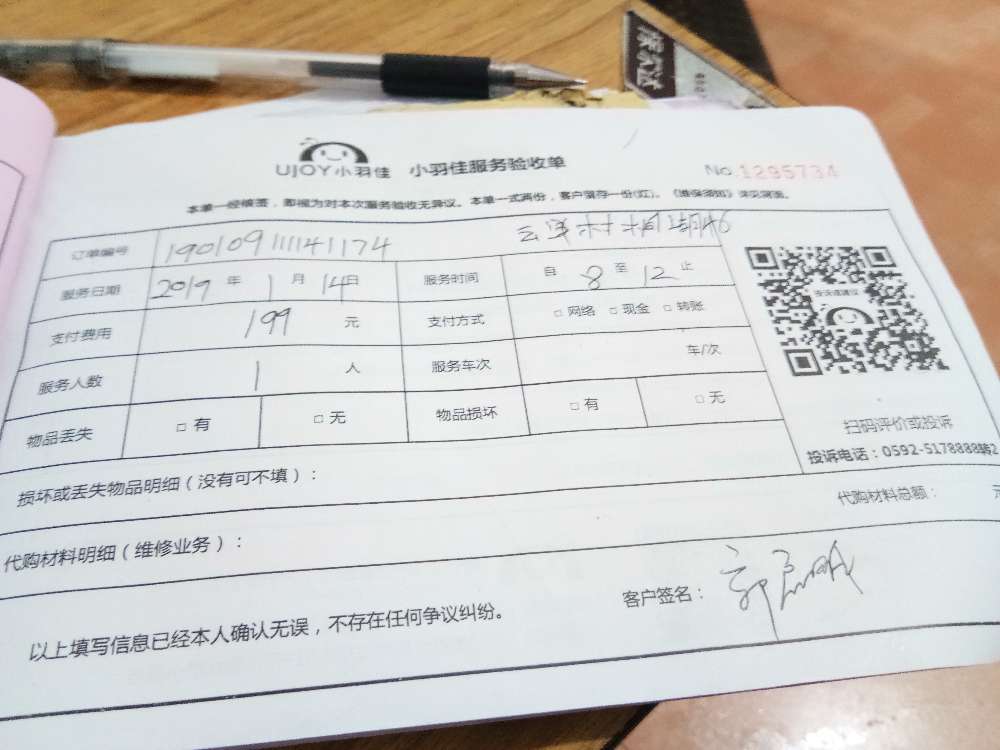 UJOY小羽佳 小羽佳服务验收单 No.1295734
本单一经核签，即视为对本次服务验收无异议。本单一式两份，客户留存一份(红)。《维保须知》详见背面。
订单编号 190109111141174
服务日期 2019年1月14日 服务时间 自8至12止
支付费用 199元 支付方式 □网络 □现金 □转账
服务人数 1人 服务车次 车/次
物品丢失 □有 □无 物品损坏 □有 □无
投诉或建议
扫码评价或投诉
投诉电话：0592-5178888转2
损坏或丢失物品明细（没有可不填）：
代购材料明细（维修业务）： 代购材料总额： 元
以上填写信息已经本人确认无误，不存在任何争议纠纷。 客户签名：